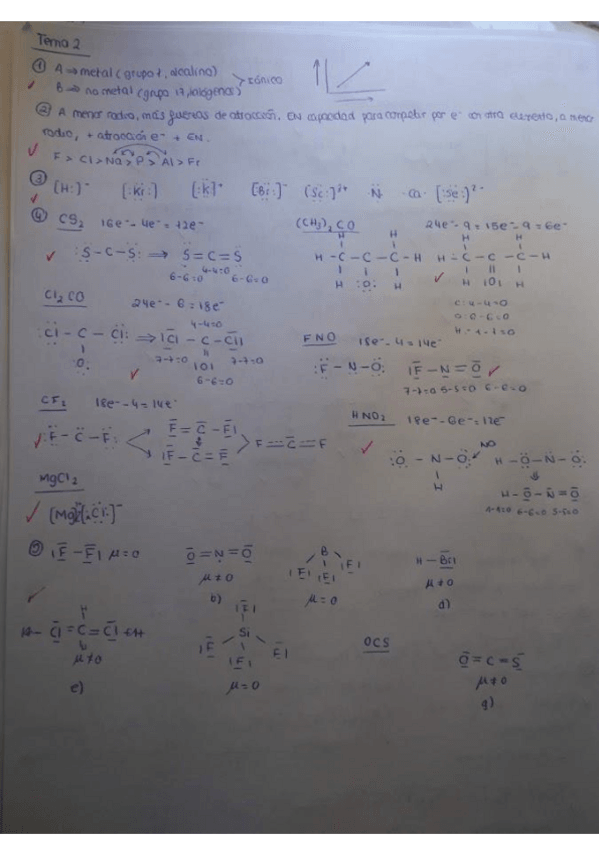 Tema 2
① A ⇒ metal (grupo 1, alcalino)
B ⇒ no metal (grupo 17, halógenos) > iónico
② A menor radio, más fuerzas de atracción. EN capacidad para competir por e⁻ con otro elemento, a menor
radio, + atracción e⁻ + EN.
F > Cl > Na > P > Al > Fr
③ [H:]⁻ [:Kr:] [:K:]⁺ [:Br:]⁻ [:Sc:]³⁺ ·N· ·Ca· [:Se:]²⁻
④ CS₂ 16e⁻ - 4e⁻ = 12e⁻ (CH₃)₂CO 24e⁻ - 9 = 15e⁻ - 9 = 6e⁻
:S - C - S: ⇒ S = C = S
6-6=0 4-4=0 6-6=0
H H H
H - C - C - C - H H - C - C - C - H
H :O: H H |O| H
C: 4-4=0
O: 6-6=0
H: 1-1=0
Cl₂CO 24e⁻ - 6 = 18e⁻
:Cl - C - Cl: ⇒ |Cl - C - Cl|
4-4=0
:O: |O|
7-7=0 7-7=0
6-6=0
FNO 18e⁻ - 4 = 14e⁻
:F - N - O: |F - N = O
7-7=0 5-5=0 6-6=0
CF₂ 18e⁻ - 4 = 14e⁻
:F - C - F: F = C - F| F = C = F
|F - C = F
HNO₂ 18e⁻ - 6e⁻ = 12e⁻
:O - N - O: NO H - O - N - O:
H
H - O - N = O
1-1=0 6-6=0 5-5=0
MgCl₂
[:Cl:]⁻
⑤ |F - F| μ = 0 O = N = O B H - Br|
|F| |F| |F|
μ ≠ 0 μ = 0 μ ≠ 0
b) d)
|F|
H
Cl = C = Cl Si OCS O = C = S
|F |F| F|
μ ≠ 0 μ = 0 μ ≠ 0
e) g)